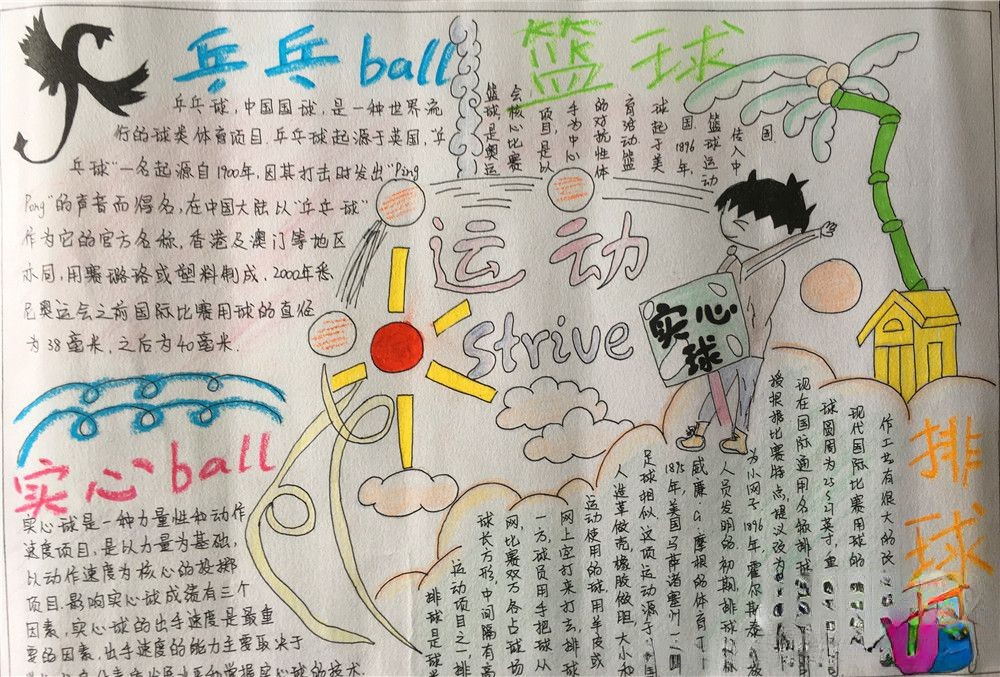 乒乓ball
乒乓球,中国国球,是一种世界流
行的球类体育项目.乒乓球起源于英国,"乒
乓球"一名起源自1900年,因其打击时发出"Ping
Pong"的声音而得名,在中国大陆以"乒乓球"
作为它的官方名称,香港及澳门等地区
亦同,用赛璐珞或塑料制成.2000年悉
尼奥运会之前国际比赛用球的直径
为38毫米,之后为40毫米.
篮球
篮球,是奥运
会核心比赛
项目,是以
手为中心
的对抗性体
育活动,篮
球起于美
国,1896年,
篮球运动
传入中
国.
运动
strive
实心
球
实心ball
实心球是一种力量性和动作
速度项目,是以力量为基础,
以动作速度为核心的投掷
项目.影响实心球成绩有三个
因素,实心球的出手速度是最重
要的因素,出手速度的能力主要取决于
掌握实心球的技术.
排球
排球是球
运动项目之一,排
球长方形,中间隔有高
网,比赛双方各占球场
一方,球员用手把球从
网上空打来打去,排球
运动使用的球,用羊皮或
人造革做壳橡胶做胆,大小和
足球相似,这项运动源于
1895年,美国马萨诸塞州
威廉·G·摩根的体育干
人员发明的.初期,排球
为小网子,1896年,霍尔斯泰
授根据比赛特点,提议改为
现在国际通用名称排球
球圆周为25~27英寸,重
现代国际比赛用球的
作工艺有很大的改